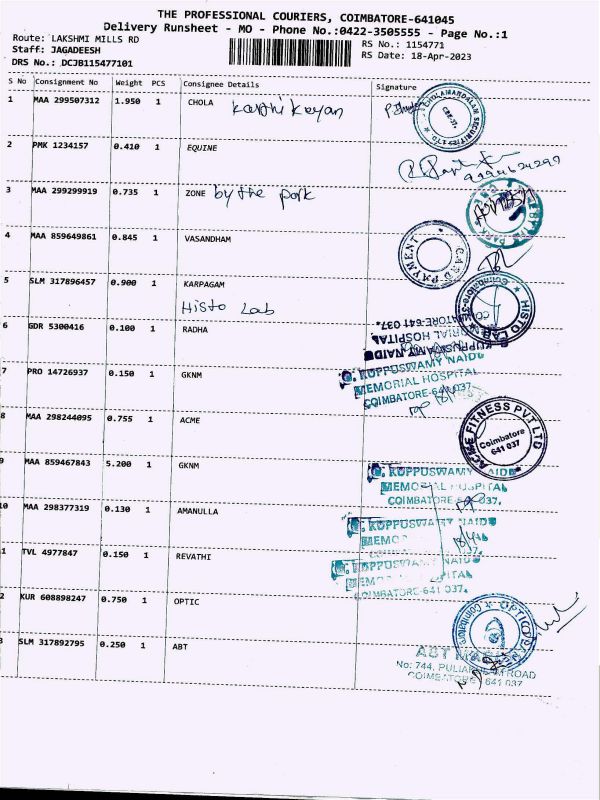 THE PROFESSIONAL COURIERS, COIMBATORE-641045
Delivery Runsheet - MO - Phone No.:0422-3505555 - Page No.:1
Route: LAKSHMI MILLS RD
Staff: JAGADEESH
DRS No.: DCJB115477101
RS No.: 1154771
RS Date: 18-Apr-2023
S No Consignment No Weight PCS Consignee Details Signature
1 MAA 299507312 1.950 1 CHOLA Karthikeyan
CHOLAMANDALAM SECURITIES LTD.
2 PMK 1234157 0.410 1 EQUINE
3 MAA 299299919 0.735 1 ZONE by the park
4 MAA 859649861 0.845 1 VASANDHAM
CARD PAYMENT
5 SLM 317896457 0.900 1 KARPAGAM
Histo Lab
HISTO LAB
Coimbatore
6 GDR 5300416 0.100 1 RADHA
G. KUPPUSWAMY NAIDU
MEMORIAL HOSPITAL
COIMBATORE-641 037.
7 PRO 14726937 0.150 1 GKNM
G. KUPPUSWAMY NAIDU
MEMORIAL HOSPITAL
COIMBATORE-641 037.
8 MAA 298244095 0.755 1 ACME
ACME FITNESS PVT LTD
Coimbatore
641 037
9 MAA 859467843 5.200 1 GKNM
G. KUPPUSWAMY NAIDU
MEMORIAL HOSPITAL
COIMBATORE-641 037.
10 MAA 298377319 0.130 1 AMANULLA
G. KUPPUSWAMY NAIDU
1 TVL 4977847 0.150 1 REVATHI
G. KUPPUSWAMY NAIDU
MEMORIAL HOSPITAL
COIMBATORE-641 037.
2 KUR 608898247 0.750 1 OPTIC
3 SLM 317892795 0.250 1 ABT
ABT
No: 744, PULIAKULAM ROAD
COIMBATORE - 641 037